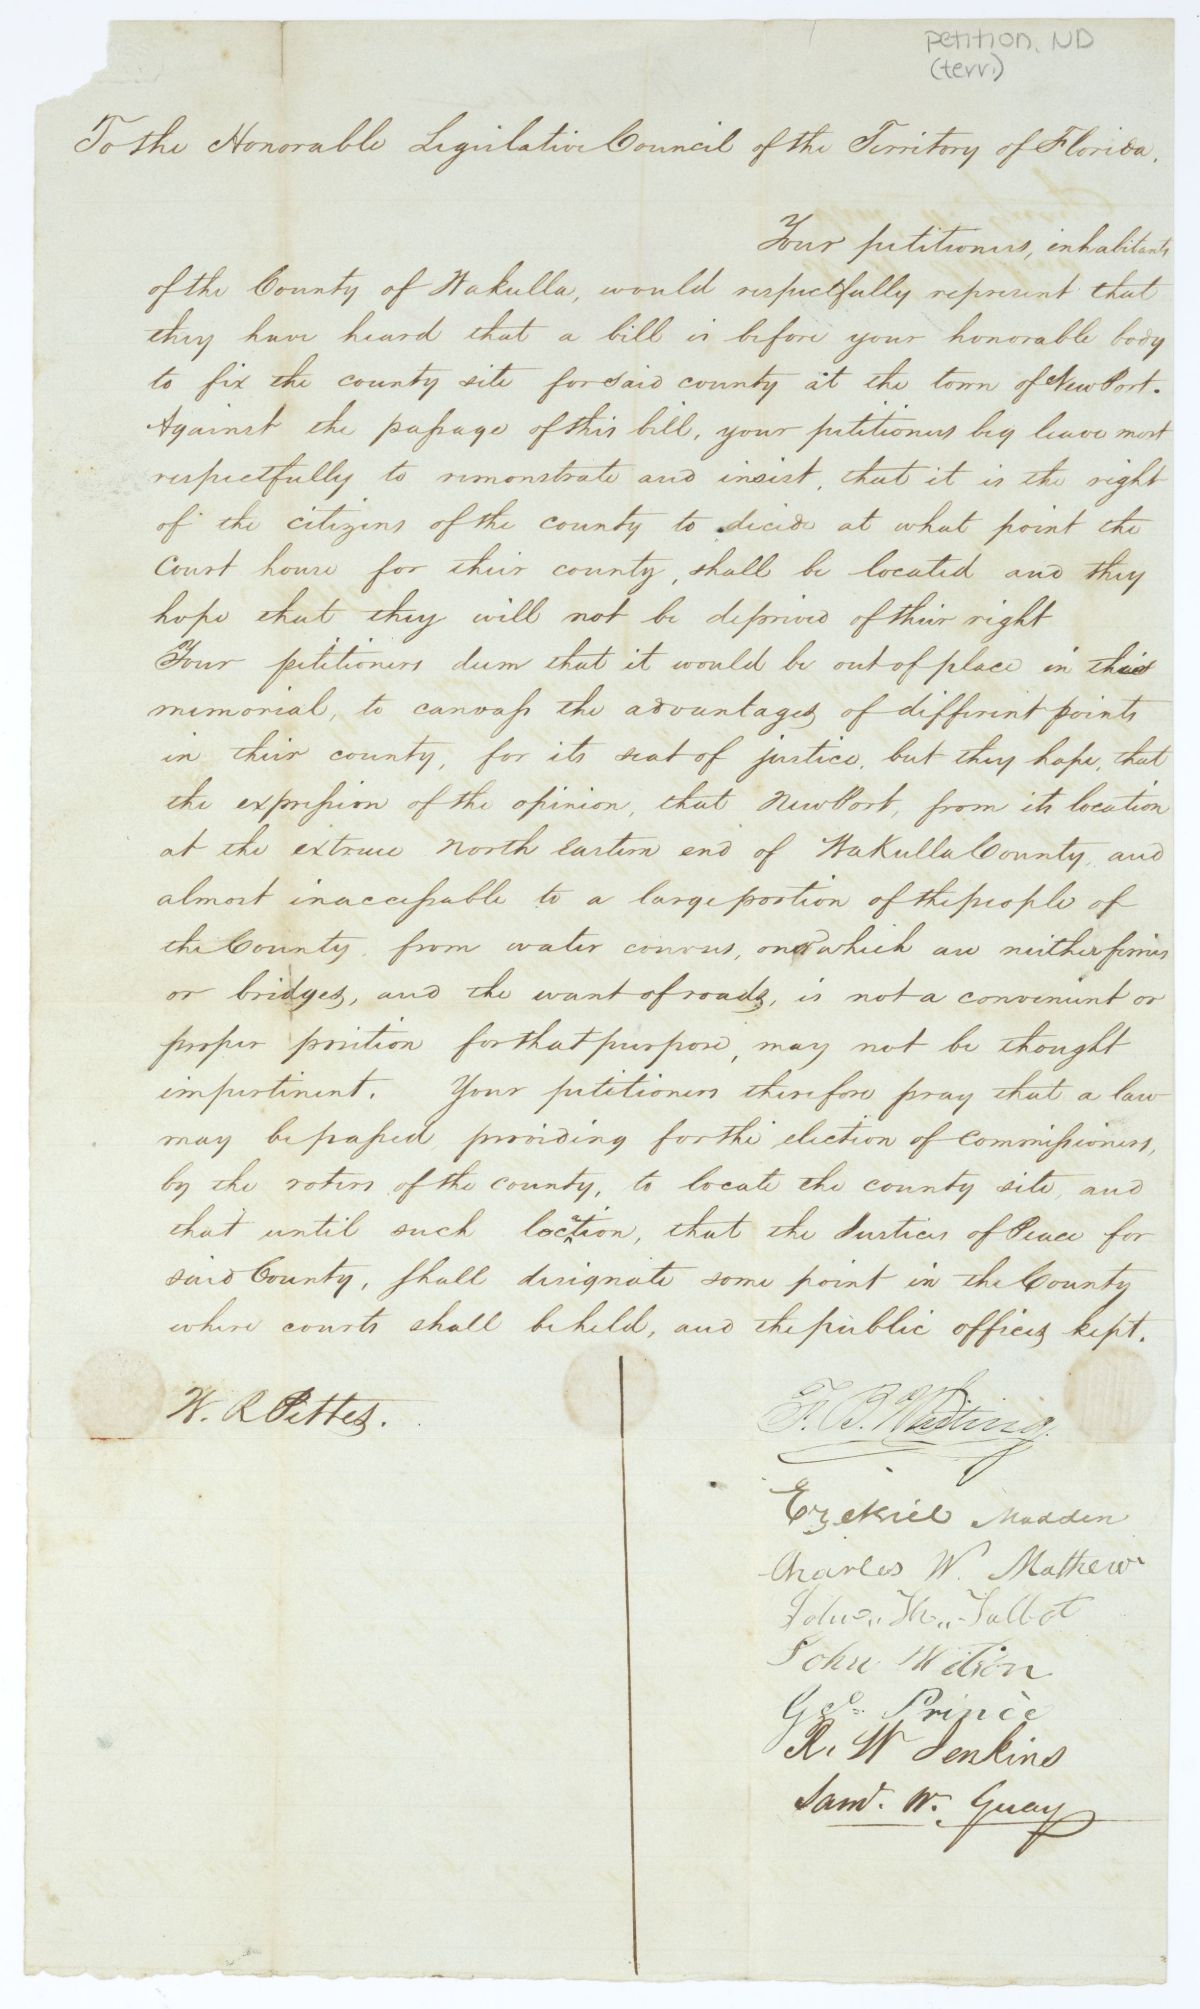 petition, ND
(terr.)
To the Honorable Legislative Council of the Territory of Florida.
Your petitioners, inhabitants
of the County of Wakulla, would respectfully represent that
they have heard that a bill is before your honorable body
to fix the county site for said county at the town of New Port.
Against the passage of this bill, your petitioners beg leave most
respectfully to remonstrate and insist, that it is the right
of the citizens of the county to decide at what point the
Court house for their county, shall be located and they
hope that they will not be deprived of their right
Your petitioners deem that it would be out of place in this
memorial, to canvass the advantages of different points
in their county, for its seat of justice, but they hope, that
the expression of the opinion, that New Port, from its location
at the extreme North Eastern end of Wakulla County, and
almost inaccessable to a large portion of the people of
the County from water courses, over which are neither ferries
or bridges, and the want of roads, is not a convenient or
proper position for that purpose, may not be thought
impertinent. Your petitioners therefore pray that a law
may be passed, providing for the election of Commissioners,
by the voters of the county, to locate the county site, and
that until such location, that the Justices of Peace for
said County, shall designate some point in the County
where courts shall be held, and the public offices kept.
W. R Pittes.
F. B. Whiting
Ezekiel Madden
Charles W. Mathews
John Talbot
John Wilson
Geo. Prince
R. W Jenkins
Saml. W. Guay